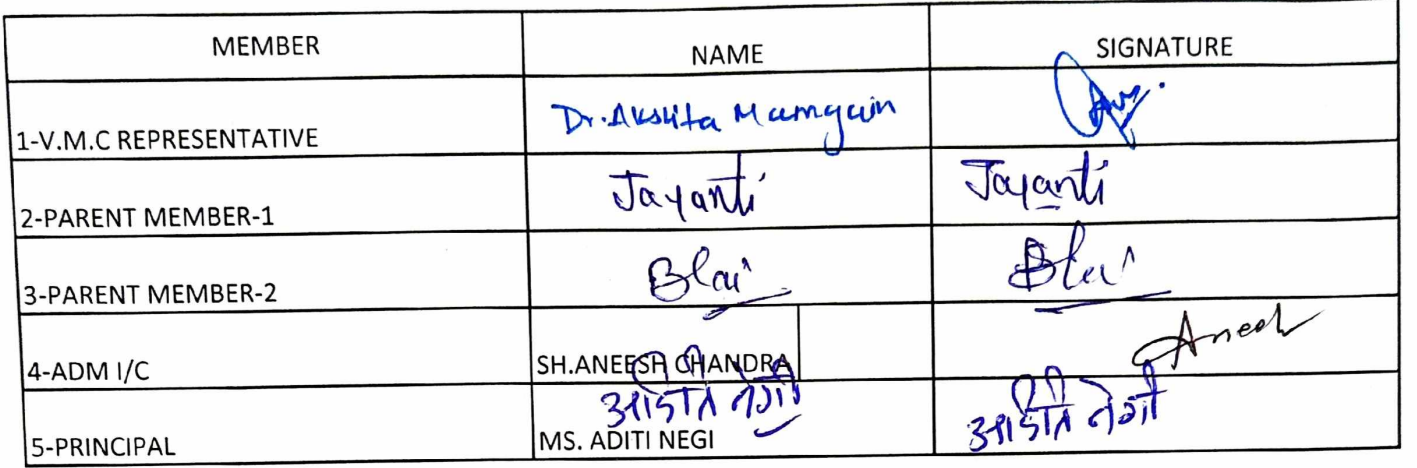 MEMBER NAME SIGNATURE
1-V.M.C REPRESENTATIVE Dr. Akshita Mamgain
2-PARENT MEMBER-1 Jayanti Jayanti
3-PARENT MEMBER-2
4-ADM I/C SH.ANEESH CHANDRA Aneesh
अदिति नेगी अदिति नेगी
5-PRINCIPAL MS. ADITI NEGI